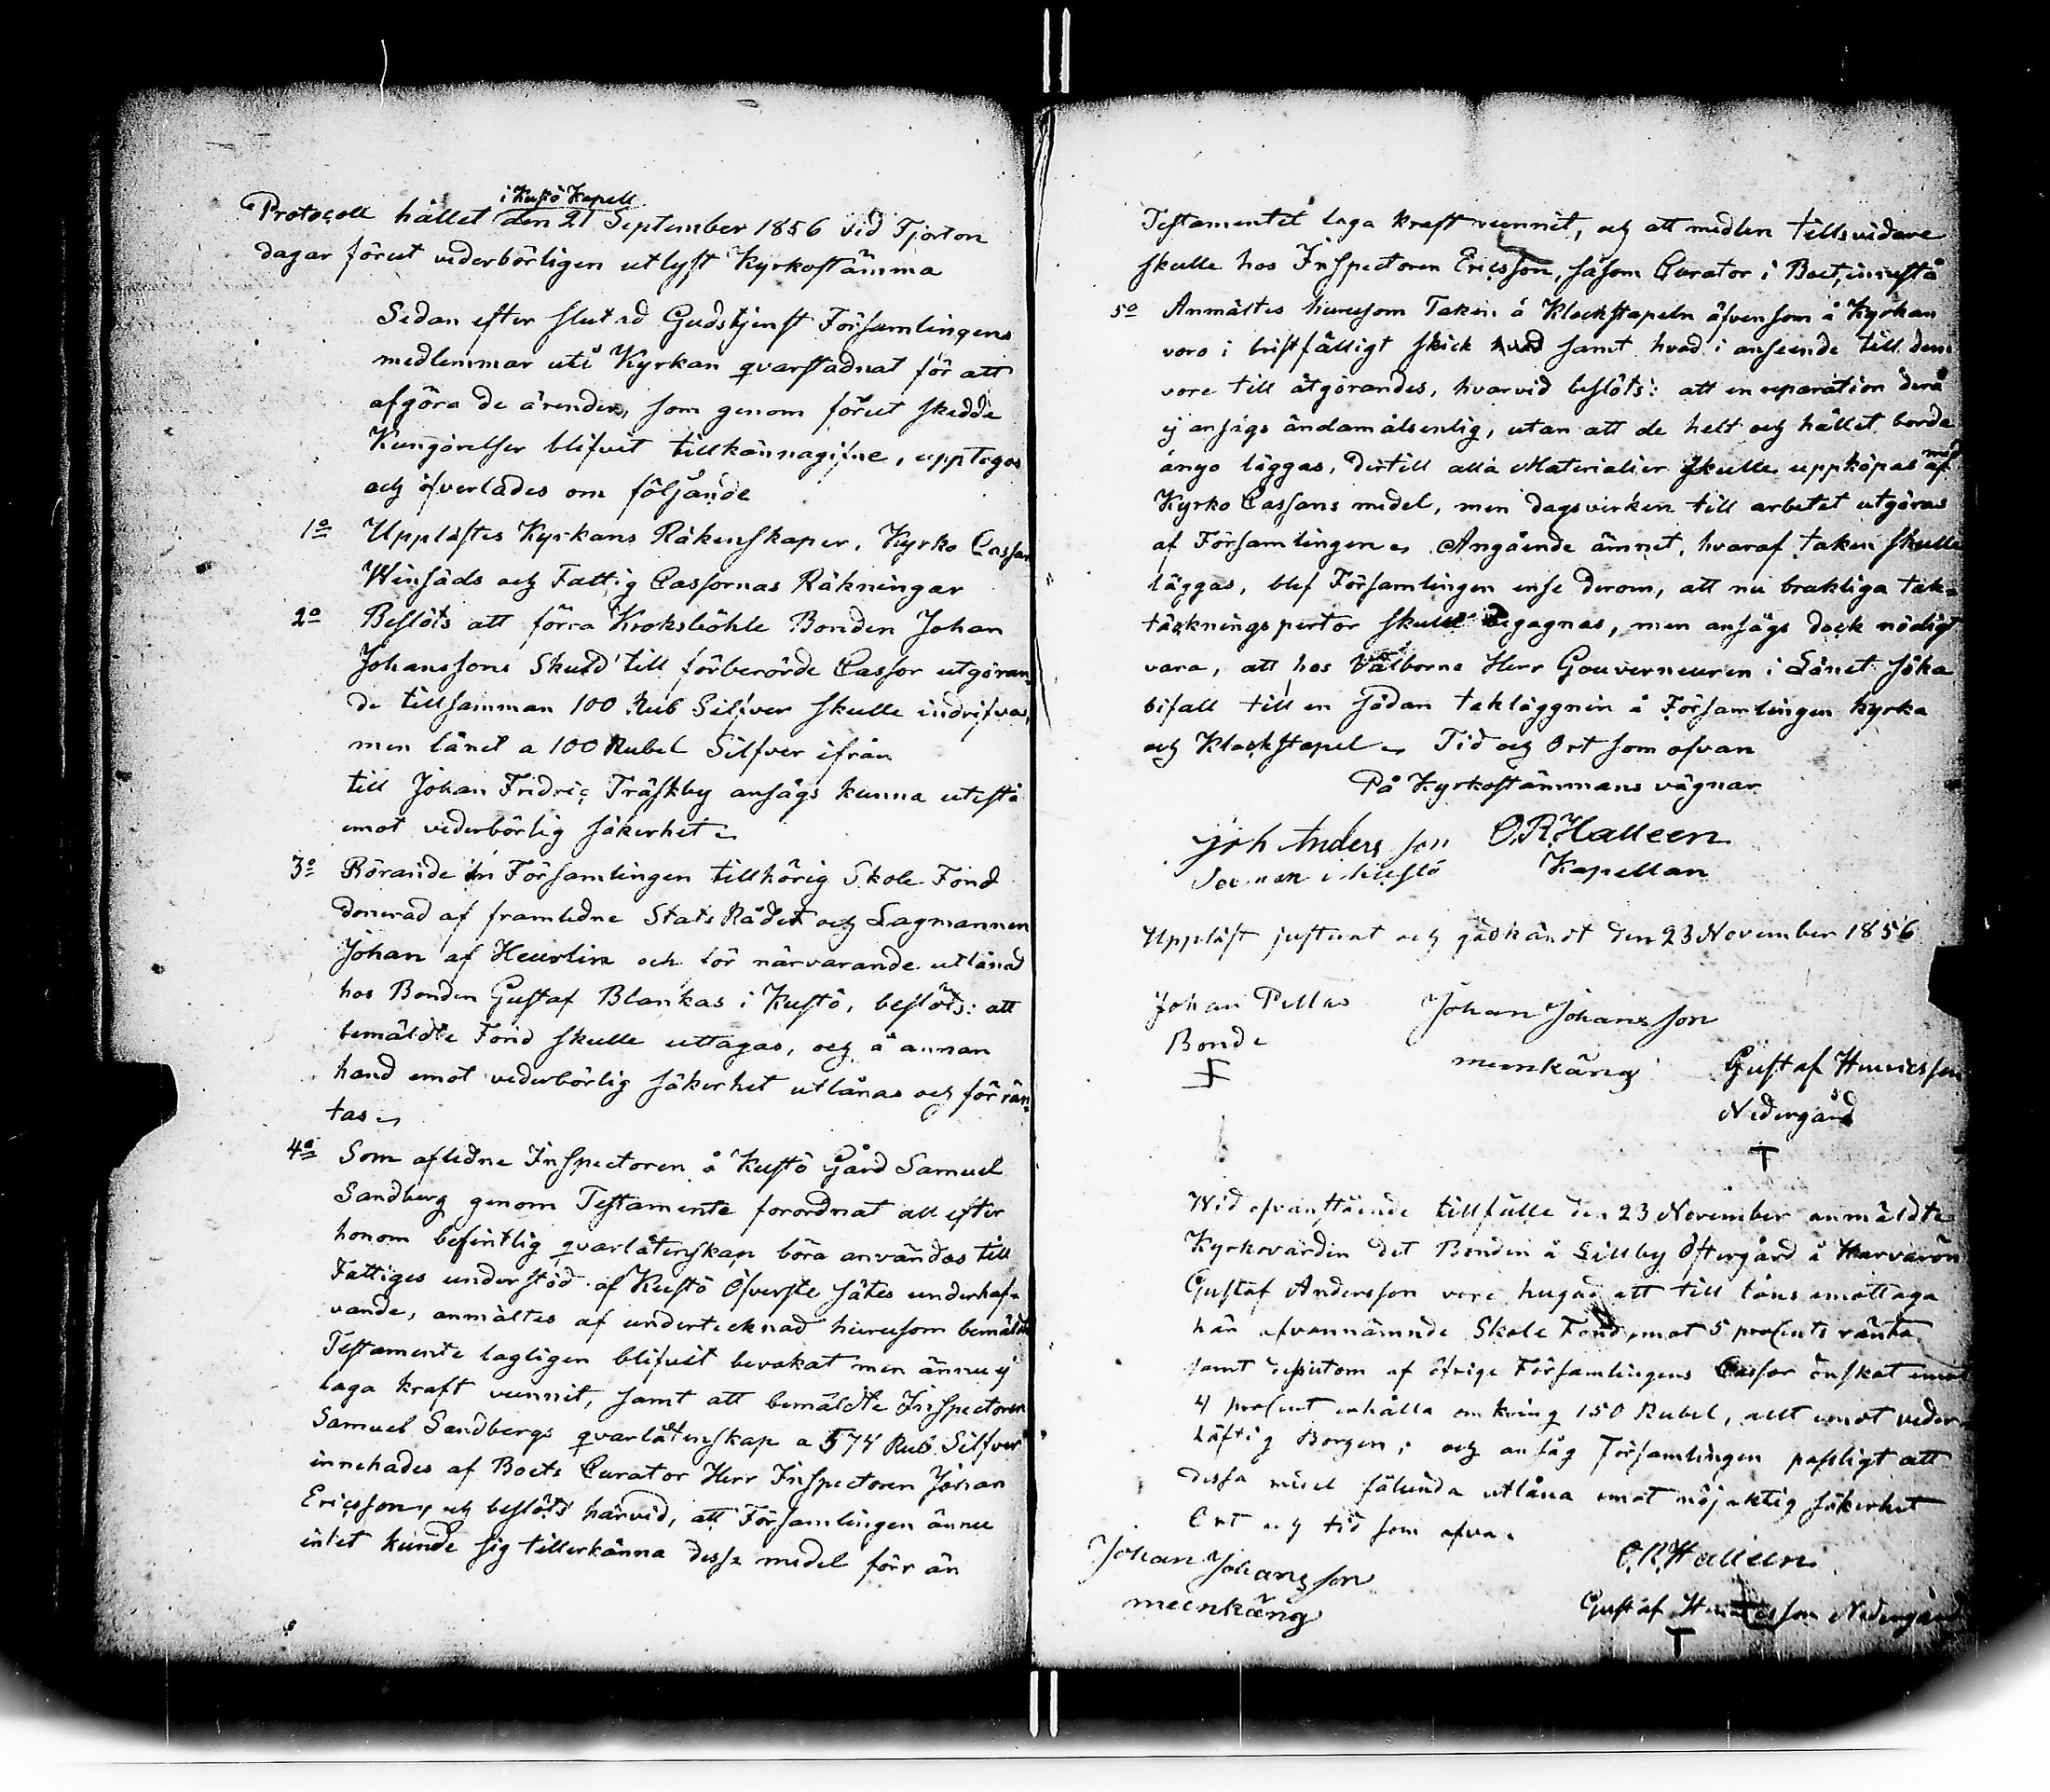 i Kustö Kapell
Protocoll hållet den 21 September 1856 vid Fjorton
dagar förut vederbörligen utlyst Kyrkostämma
Sedan efter slutad Gudstjenst Församlingens
medlemmar uti Kyrkan qvarstadnat för att
afgöra de ärender, som genom förut skedde
Kungörelser blifvit tillkännagifne, upptogos
och öfverlades om följande
1o Upplästes Kyrkans Räkenskaper, Kyrko Cassan
Winsäds och Fattig Cassornas Räkningar
2o Beslöts att förra Kroksböhle Bonden Johan
Johanssons Skuld till förberörde Cassor utgöran-
de tillsamman 100 Rub Silfver skulle indrifvas,
men lånet a 100 Rubel Silfver ifrån
till Johan Fridric Träskby ansågs kunna utestå
emot vederbörlig säkerhet
3o Rörande en Församlingen tillhörig Skole Fond
donerad af framledne Stats Rådet och Lagmannen
Johan af Heurlin och för närvarande utlånad
hos Bonden Gustaf Blankas i Kustö, beslöts: att
bemäldte Fond skulle uttagas, och å annan
hand emot vederbörlig säkerhet utlånas och förrän-
tas
4o Som afledne Inspectoren å Kustö Gård Samuel
Sandberg genom Testamente forordnat all efter
honom befintlig qvarlåtenskap böra användas till
Fattiges understöd af Kustö Öfverste sätes underhaf-
vande, anmältes af undertecknad hurusom bemäldte
Testamente lagligen blifvit bevakat men ännu ej
laga kraft vunnit, samt att bemäldte Inspectoren
Samuel Sandbergs qvarlåtenskap a 574 Rub. Silfver
innehades af Boets Curator Herr Inspectoren Johan
Ericsson, och beslöts härvid, att Församlingen ännu
intet kunde sig tillerkänna dessa medel förr än
Testamentet laga kraft vunnit, och att medlen tillsvidare
skulle hos Inspectoren Ericsson, såsom Curator i Boet, innestå
5o Anmältes hurusom Taken å Klockstapeln äfvensom å Kyrkan
voro i bristfälligt skick samt hvad i anseende till dem
vore till åtgörandes, hvarvid beslöts: att en reparation derå
ej ansågs ändamålsenlig, utan att de helt och hållet borde
ånyo läggas, dertill alla Materialier skulle uppköpas med af
Kyrko Cassans medel, men dagsvirken till arbetet utgöras
af Församlingen. Angående ämnet, hvaraf taken skulle
läggas, blef Församlingen ense derom, att nu brukliga tak-
täckningspertor skulle begagnas, men ansågs dock nödigt
vara, att hos Välborne Herr Gouverneuren i Länet söka
bifall till en sådan takläggnin å Församlingen Kyrka
och Klockstapel. Tid och Ort som ofvan
På Kyrkostämmans vägnar
Joh Anders son O.R. Halleen
i Kustö Kapellan
Uppläst justerat och godkändt den 23 November 1856
Johan Pellas Johan Johansson
Bonde meenkäng Gustaf Henricsson
Nedergård
Wid ofvanstående tillfälle den 23 November anmäldte
Kyrkovärden det Bonden å Lillby Östergård å Harvarön
Gustaf Andersson vore hugad att till låns emottaga
här ofvannämnde Skole Fond, emot 5 procents ränta
samt dessutom af öfrige Församlingens Cassor önskat emot
4 procent erhålla omkring 150 Rubel, allt emot veder-
häftig Borgen; och ansåg Församlingen passligt att
dessa medel sålunda utlåna emot nöjaktig säkerhet
Ort och tid som ofvan
Johan Johansson O.R. Halleen
meenkäng Gustaf Henricsson Nedergård